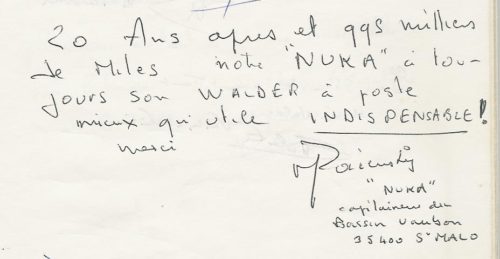 20 Ans apres et 995 milliers
de Miles notre "NUKA" à tou-
jours son WALDER à poste
mieux qu'utile INDISPENSABLE!
merci
"NUKA"
capitainerie du
Bassin Vauban
35400 St MALO